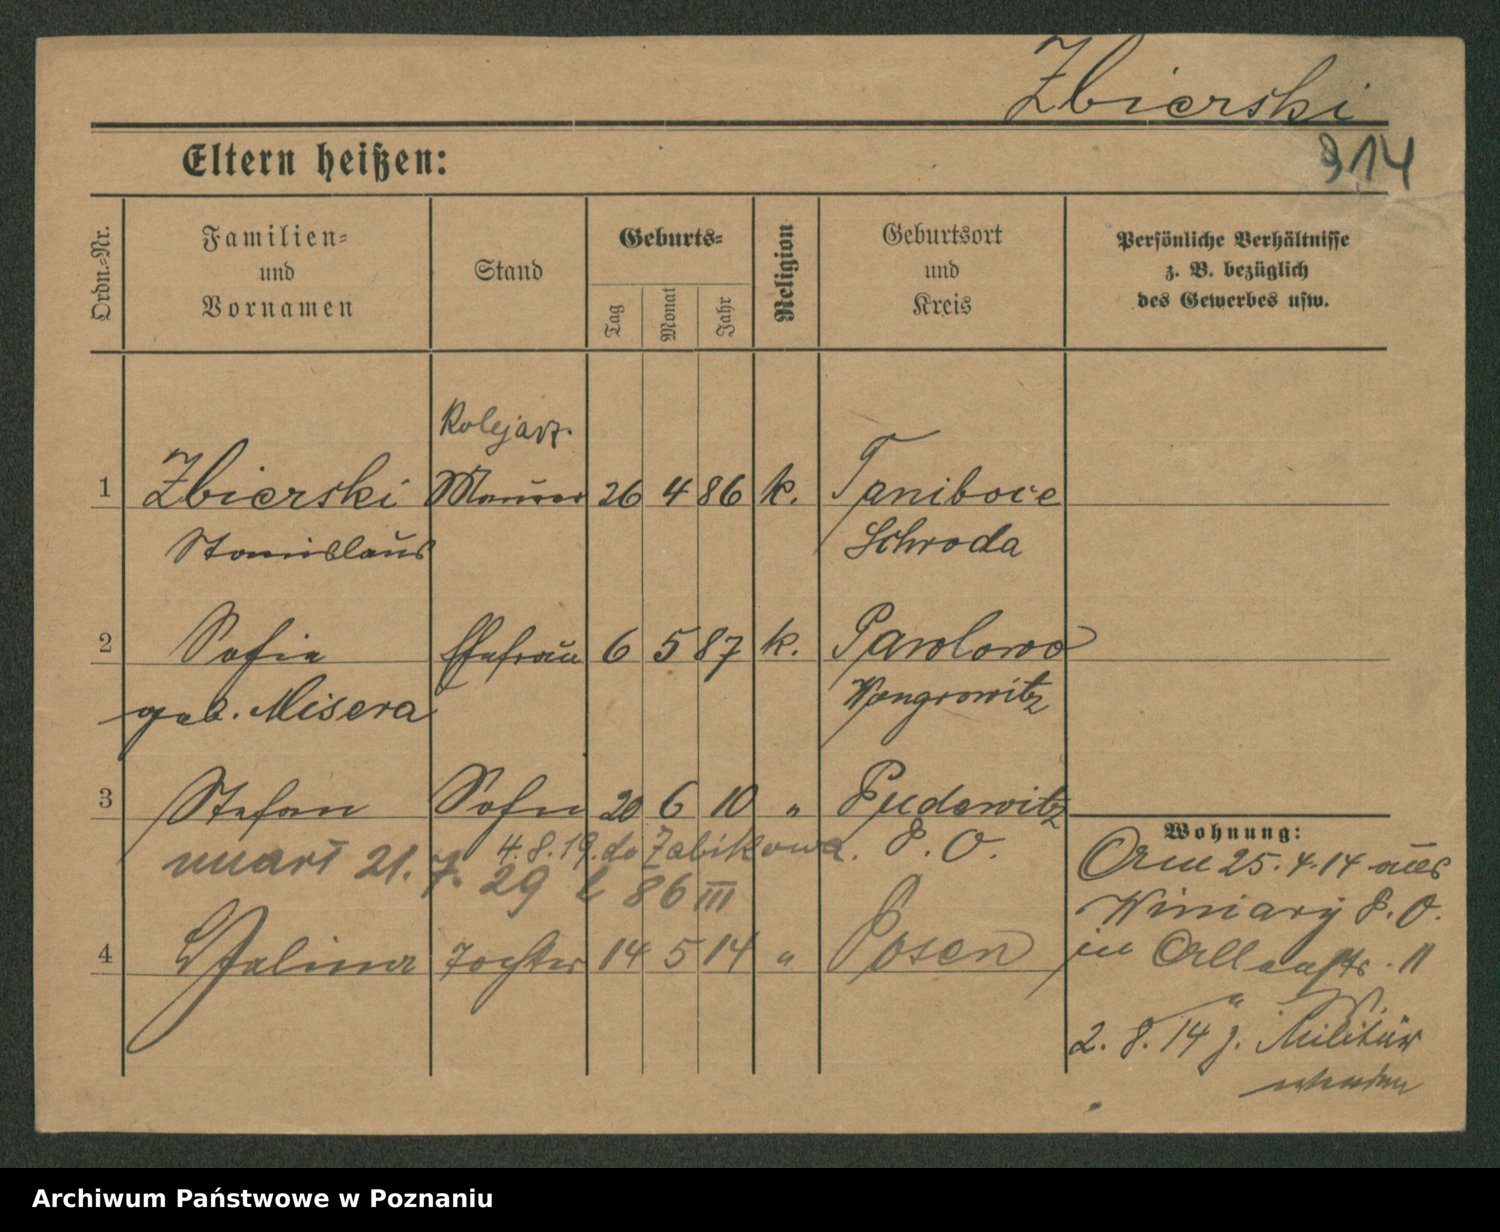 Zbierski
914
Eltern heißen:
Ordn.-Nr.
Familien-
und
Vornamen
Stand
Geburts-
Tag
Monat
Jahr
Religion
Geburtsort
und
Kreis
Persönliche Verhältnisse
z. B. bezüglich
des Gewerbes usw.
Kolejarz.
1 Zbierski Maurer 26 4 86 k. Taniborie
Stanislaus Schroda
2 Sofie Ehefrau 6 5 87 k. Pawlowo
geb. Misera Wongrowitz
3 Stefan Sohn 20 6 10 " Pudewitz
P. O.
4.8.19. do Żabikowa.
umarł 21. 7. 29 L 86 III
4 Halina Tochter 14 5 14 " Posen
Wohnung:
Am 25.4.14 aus
Winiary P. O.
in Allee 11
2. 8. 14 z. Militär